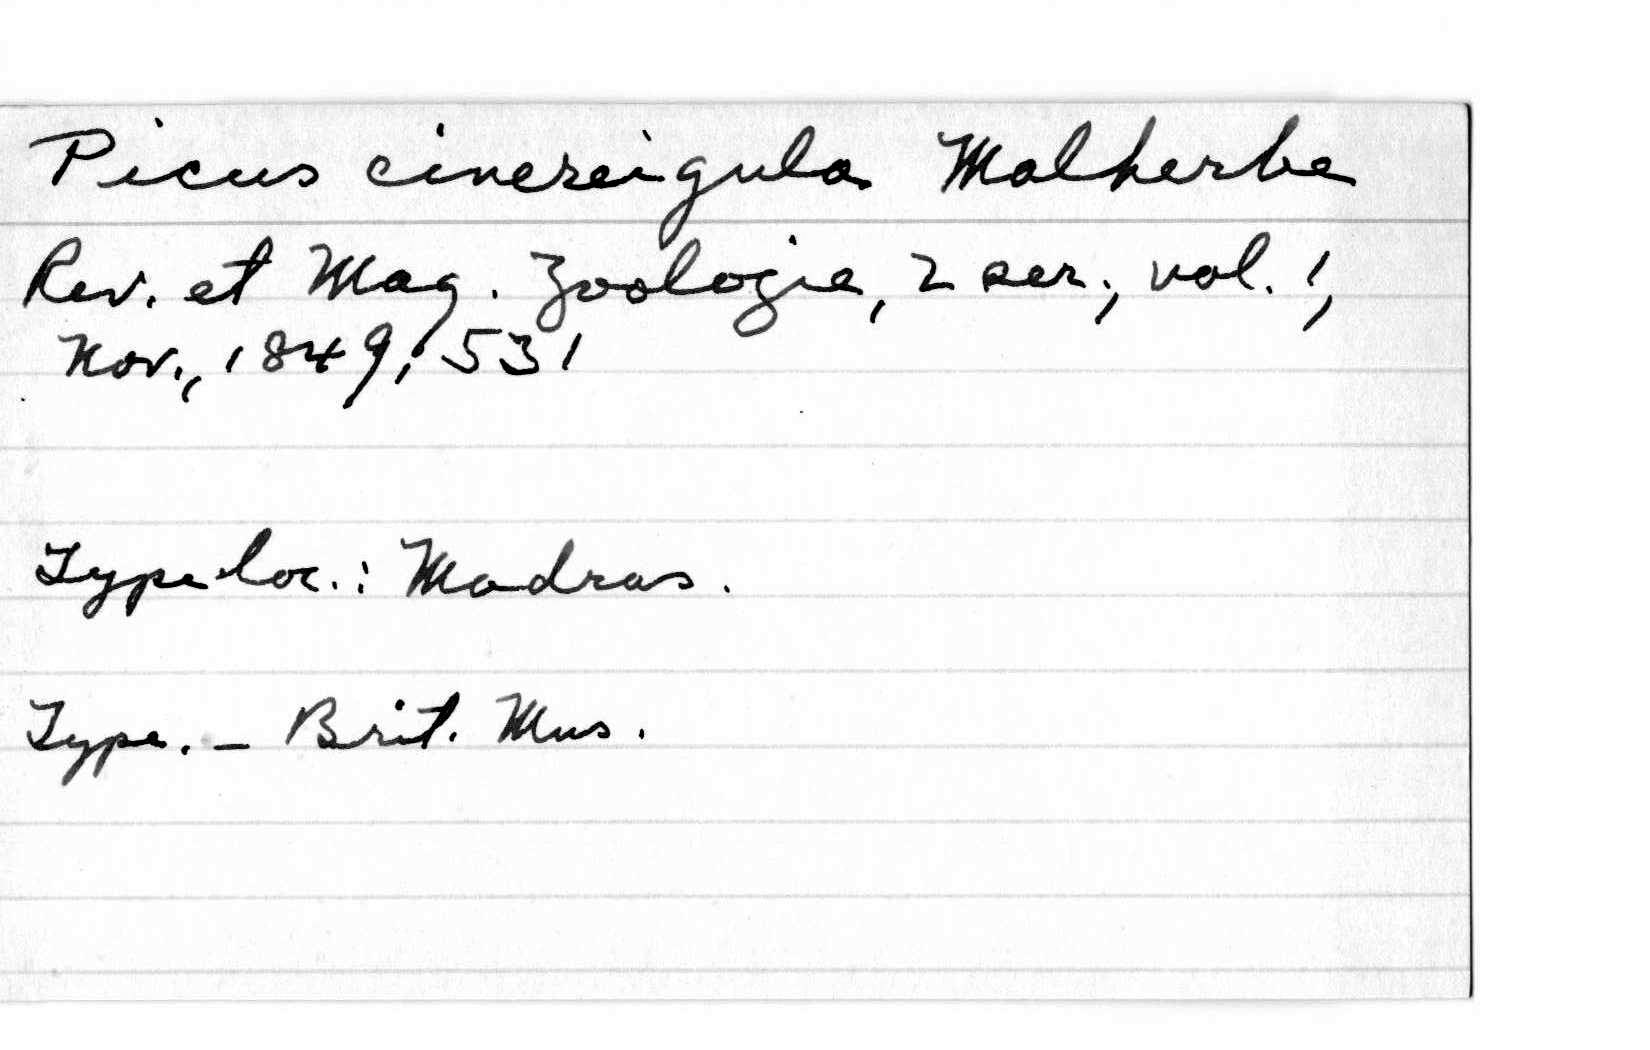 Picus cinereigula Malherbe
Rev. et Mag. Zoologie, 2 ser., vol. 1,
Nov., 1849, 531
Type loc.: Madras.
Type. – Brit. Mus.